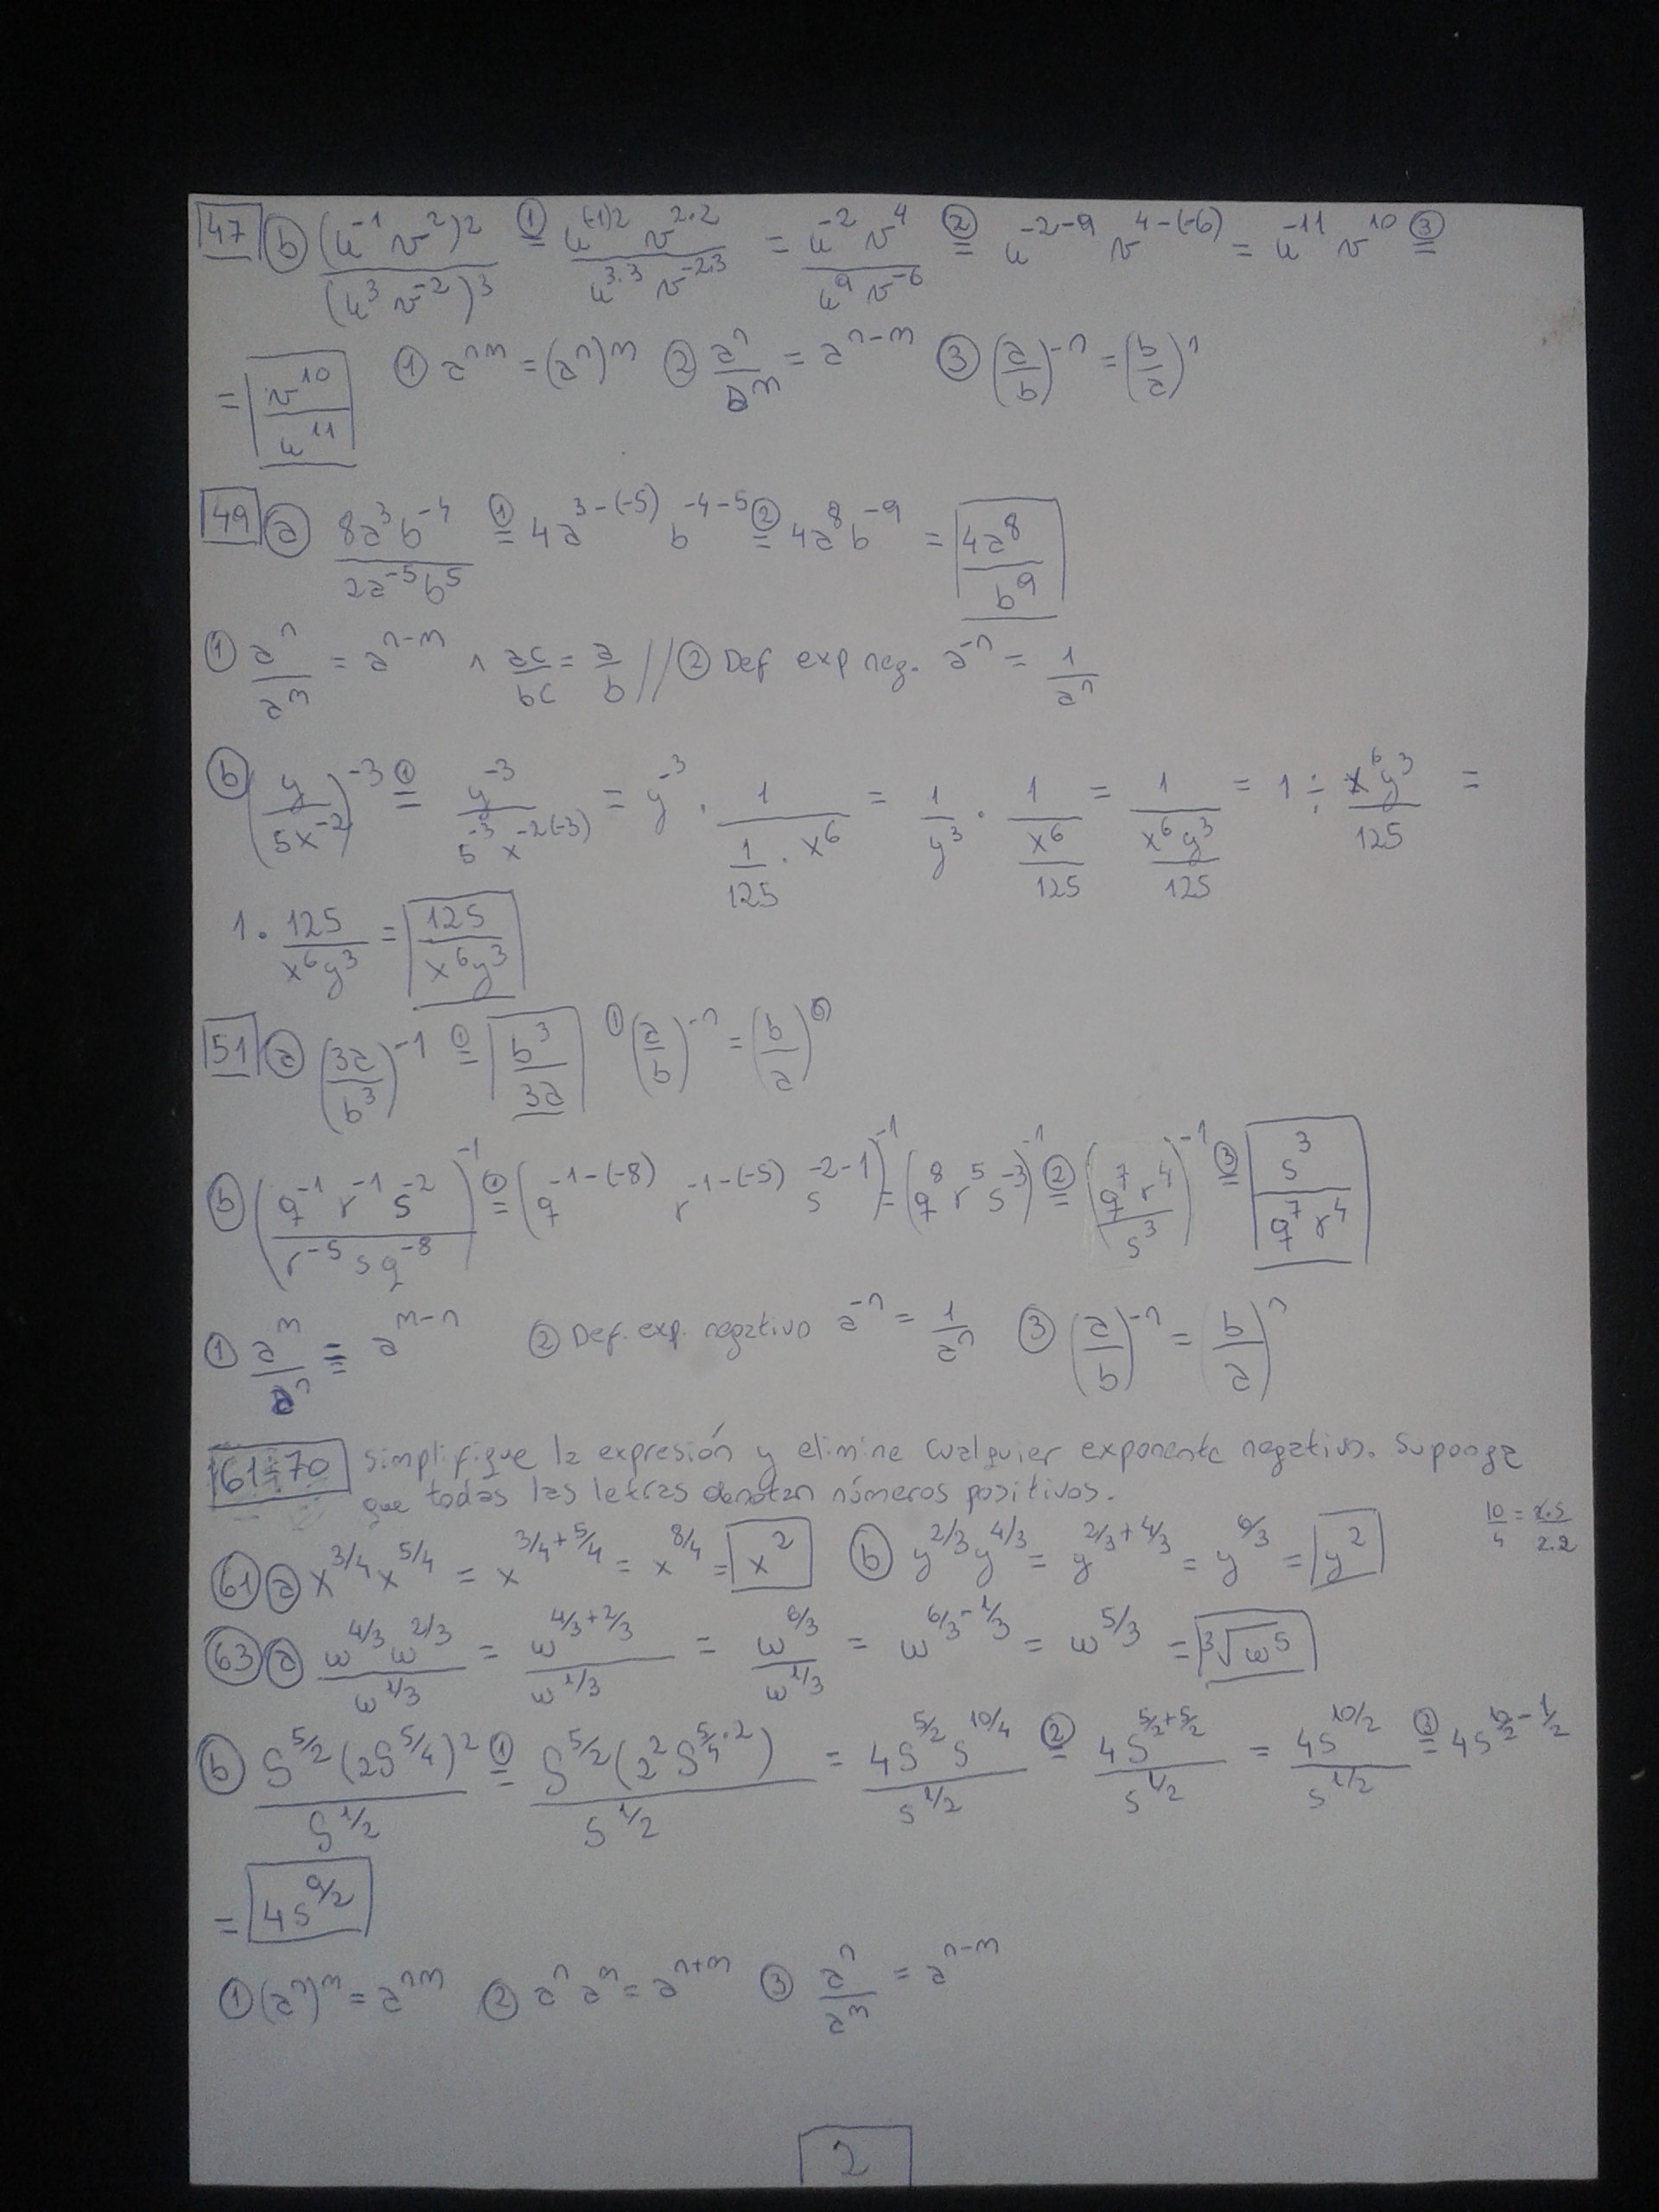 47 b (u⁻¹ v²)² / (u³ v⁻²)³ =① u⁽⁻¹⁾² v²·² / u³·³ v⁻²·³ = u⁻² v⁴ / u⁹ v⁻⁶ =② u⁻²⁻⁹ v⁴⁻⁽⁻⁶⁾ = u⁻¹¹ v¹⁰ =③
= v¹⁰ / u¹¹ ① aⁿᵐ = (aⁿ)ᵐ ② aⁿ / bᵐ = aⁿ⁻ᵐ ③ (a/b)⁻ⁿ = (b/a)ⁿ
49 a 8a³b⁻⁴ / 2a⁻⁵b⁵ =① 4a³⁻⁽⁻⁵⁾ b⁻⁴⁻⁵ =② 4a⁸b⁻⁹ = 4a⁸ / b⁹
① aⁿ / aᵐ = aⁿ⁻ᵐ ∧ ac/bc = a/b // ② Def exp neg. a⁻ⁿ = 1/aⁿ
b (y / 5x⁻²)⁻³ =① y⁻³ / 5⁻³ x⁻²⁽⁻³⁾ = y⁻³ · 1 / (1/125 · x⁶) = 1/y³ · 1 / (x⁶/125) = 1 / (x⁶y³/125) = 1 ÷ x⁶y³/125 =
1 · 125 / x⁶y³ = 125 / x⁶y³
51 a (3a / b³)⁻¹ =① b³ / 3a ① (a/b)⁻ⁿ = (b/a)ⁿ
b (q⁻¹ r⁻¹ s⁻² / r⁻⁵ s q⁻⁸)⁻¹ =① (q⁻¹⁻⁽⁻⁸⁾ r⁻¹⁻⁽⁻⁵⁾ s⁻²⁻¹)⁻¹ = (q⁸ r⁵ s⁻³)⁻¹ =② (q⁷ r⁴ / s³)⁻¹ =③ s³ / q⁷ r⁴
① aᵐ / aⁿ = aᵐ⁻ⁿ ② Def. exp. negativo a⁻ⁿ = 1/aⁿ ③ (a/b)⁻ⁿ = (b/a)ⁿ
61-70 Simplifique la expresión y elimine cualquier exponente negativo. Suponga
que todas las letras denotan números positivos.
10/4 = 2.5/2.2
61 a x^3/4 x^5/4 = x^3/4+5/4 = x^8/4 = x² b y^2/3 y^4/3 = y^2/3+4/3 = y^6/3 = y²
63 a w^4/3 w^2/3 / w^1/3 = w^4/3+2/3 / w^1/3 = w^6/3 / w^1/3 = w^6/3-1/3 = w^5/3 = ³√w⁵
b S^5/2 (2S^5/4)² / S^1/2 =① S^5/2 (2² S^5/4·2) / S^1/2 = 4S^5/2 S^10/4 / S^1/2 =② 4S^5/2+5/2 / S^1/2 = 4S^10/2 / S^1/2 =③ 4S^10/2-1/2
= 4S^9/2
① (aⁿ)ᵐ = aⁿᵐ ② aⁿ aᵐ = aⁿ⁺ᵐ ③ aⁿ / aᵐ = aⁿ⁻ᵐ
2